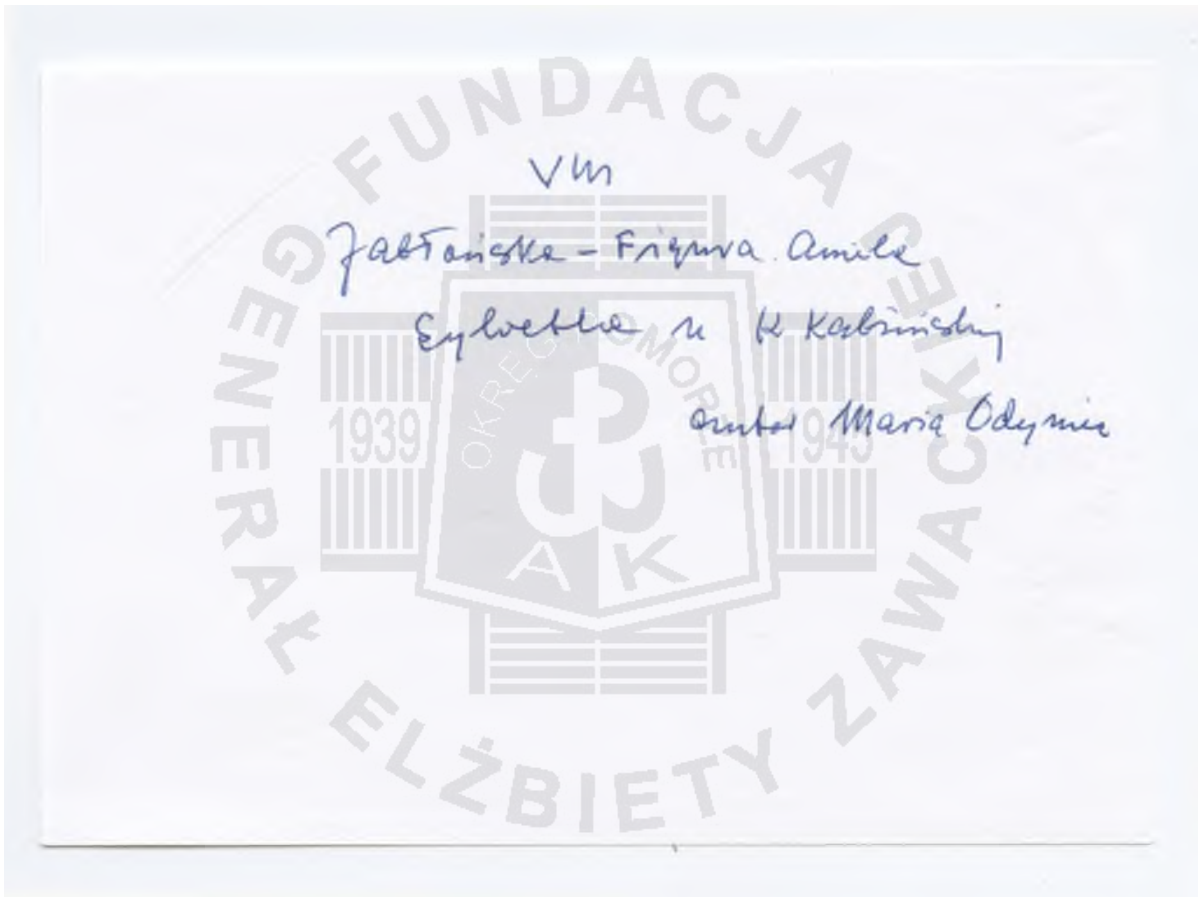 VM
Jabłońska - Figura Aniela
Sylwetka u K Kabzińskiej
autor Maria Odyniec
FUNDACJA GENERAŁ ELŻBIETY ZAWACKIEJ
OKRĘG POMORZE
1939 1945
AK